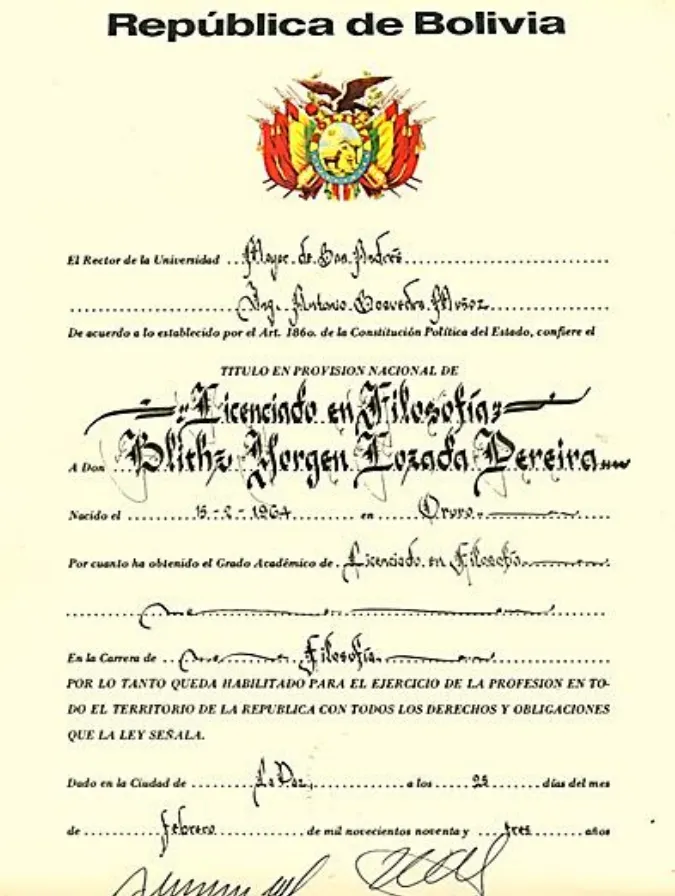 República de Bolivia
El Rector de la Universidad ..Mayor de San Andrés..............................
..............................Ing. Antonio Saavedra Muñoz..............................
De acuerdo a lo establecido por el Art. 186o. de la Constitución Política del Estado, confiere el
TITULO EN PROVISION NACIONAL DE
Licenciado en Filosofía
A Don ....Blithz Yorgen Lozada Pereira....
Nacido el ..........15-2-1964.......... en ........Oruro........
Por cuanto ha obtenido el Grado Académico de .Licenciado en Filosofía..........
En la Carrera de ..........Filosofía..........
POR LO TANTO QUEDA HABILITADO PARA EL EJERCICIO DE LA PROFESION EN TO-
DO EL TERRITORIO DE LA REPUBLICA CON TODOS LOS DERECHOS Y OBLIGACIONES
QUE LA LEY SEÑALA.
Dado en la Ciudad de ..........La Paz,.......... a los .....25..... días del mes
de ..........febrero.......... de mil novecientos noventa y ...tres........ años